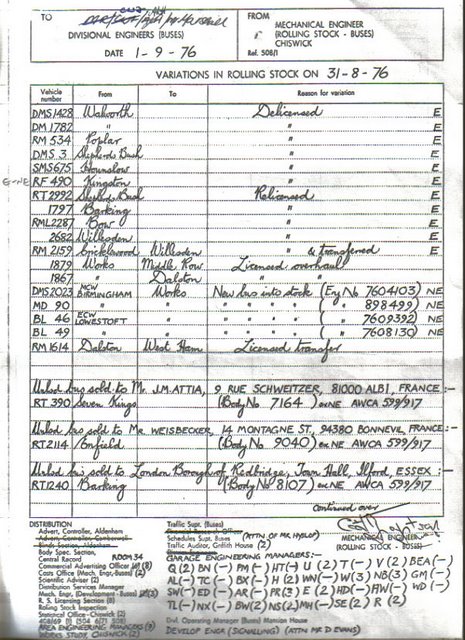 TO
FROM
MECHANICAL ENGINEER
(ROLLING STOCK - BUSES)
CHISWICK
Ref. 508/1
DIVISIONAL ENGINEERS (BUSES)
DATE 1-9-76
VARIATIONS IN ROLLING STOCK ON 31-8-76
Vehicle number From To Reason for variation
DMS1428 Walworth Delicensed E
DM 1782 " " E
RM 534 Poplar " E
DMS 3 Shepherds Bush " E
SMS675 Hounslow " E
E-NE RF 490 Kingston " E
RT2992 Shepherds Bush Relicensed E
1797 Barking " E
RML2287 Bow " E
2682 Willesden " E
RM 2159 Cricklewood Willesden " & transferred E
1879 Works Middle Row Licensed overhaul
1867 " Dalston "
DMS2023 MCW BIRMINGHAM Works New bus into stock (Eng No 7604103) NE
MD 90 " " " " " " ( " 898499) NE
BL 46 ECW LOWESTOFT " " " " " ( " 7609392) NE
BL 49 " " " " " " ( " 7608130) NE
RM 1614 Dalston West Ham Licensed transfer
Unlcd bus sold to Mr. J.M. ATTIA, 9 RUE SCHWEITZER, 81000 ALBI, FRANCE :-
RT 390 Seven Kings (Body No 7164) ex NE AWCA 599/917
Unlcd bus sold to MR WEISBECKER, 14 MONTAGNE ST, 94380 BONNEVIL, FRANCE :-
RT2114 Enfield (Body No 9040) ex NE AWCA 599/917
Unlcd bus sold to London Borough of Redbridge, Town Hall, Ilford, ESSEX :-
RT1240 Barking (Body No 8107) ex NE AWCA 599/917
Continued over
MECHANICAL ENGINEER
(ROLLING STOCK - BUSES)
DISTRIBUTION
Advert. Controller, Aldenham
Body Spec. Section,
Central Record ROOM 34
Commercial Advertising Officer (8)
Costs Office (Mech. Engr.-Buses) (2)
Scientific Adviser (2)
Distribution Services Manager
Mech. Engr. (Development - Buses)
R. S. Licensing Section (8)
Rolling Stock Inspection
Statistical Office - Chiswick (2)
AREA ENGINEERING MANAGERS
WORKS STUDY, CHISWICK (2)
Traffic Supt. (Buses)
Schedules Supt. Buses (ATTN OF MR HYSLOP)
Traffic Auditor, Griffith House (2)
GARAGE ENGINEERING MANAGERS:-
Q (2) BN (-) PM (-) HT (-) U (2) T (-) V (2) BEA (-)
AL (-) TC (-) BX (-) H (2) WN (-) W (3) NB (3) GM (-)
SW (-) ED (-) AR (-) PR (3) E (2) HD (-) HW (-) WD (-)
TL (-) NX (-) BW (2) NS (2) MH (-) SE (2) R (2)
Divl. Operating Manager (Buses) Mansion House
DEVELOP ENGR (SIGNALLING) (ATTN MR D EVANS)